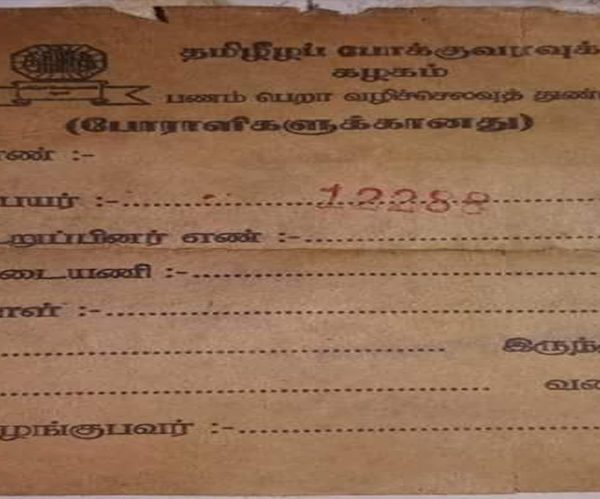 தமிழீழப் போக்குவரவுக்
கழகம்
பணம் பெறா வழிச்செலவுத் துண்
(போராளிகளுக்கானது)
ண் :-
பெயர் :-.......... 12288
உறுப்பினர் எண் :-
டையணி :-
ாள் :-
இருந்
வரை
ழங்குபவர் :-